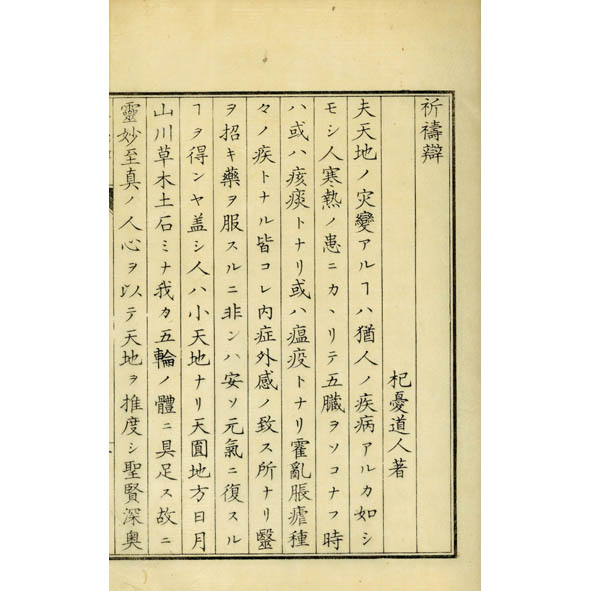 祈禱辯
杞憂道人著
夫天地ノ灾變アルヿハ猶人ノ疾病アルカ如シ
モシ人寒熱ノ患ニカヽリテ五臟ヲソコナフ時
ハ或ハ痎痰トナリ或ハ瘟疫トナリ霍亂脹瘧種
々ノ疾トナル皆コレ内症外感ノ致ス所ナリ醫
ヲ招キ藥ヲ服スルニ非ンハ安ソ元氣ニ復スル
ヿヲ得ンヤ盖シ人ハ小天地ナリ天圓地方日月
山川草木土石ミナ我カ五輪ノ體ニ具足ス故ニ
靈妙至真ノ人心ヲ以テ天地ヲ推度シ聖賢深奥